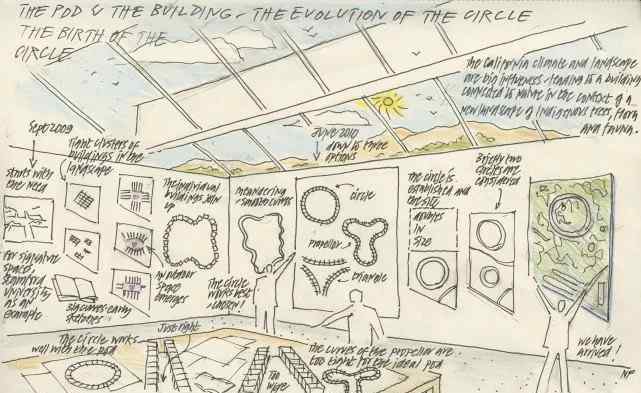 THE POD & THE BUILDING - THE EVOLUTION OF THE CIRCLE
THE BIRTH OF THE
CIRCLE
The California climate and landscape
are big influences leading to a building
connected to nature in the context of a
new landscape of indigenous trees, flora
and fauna.
Sept 2009
starts with
the need
for signature
space,
Stanford
University
as an
example
Tight clusters of
buildings in the
landscape
SJ's early
sketches
The individual
buildings join
up
an interior
space
emerges
meandering
The circle
works best
chosen!
JUNE 2010
down to three
options
circle
propellor
triangle
the circle is
established and
the size
in
size
Briefly two
circles are
considered
we have
arrived!
NF
The circle works
well with the pod
Just right
Too
wide
the curves of the propellor are
too tight for the ideal pod